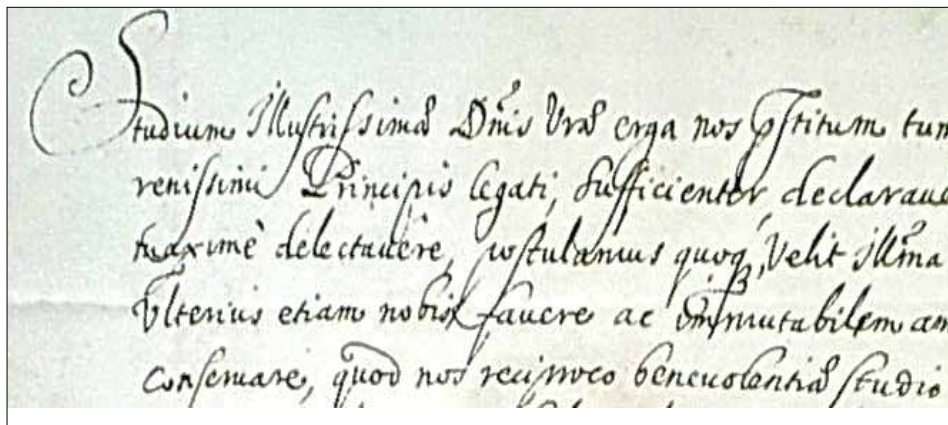 Studium Illustrissimæ Dnis Vræ erga nos pstitum tum
renissimi Principis legati, sufficienter declarave
maximè delectavêre, postulamus quoq, Velit Illma
Ulterius etiam nobis favere ac immutabilem am
conservare, quod nos reciproco benevolentiæ studio